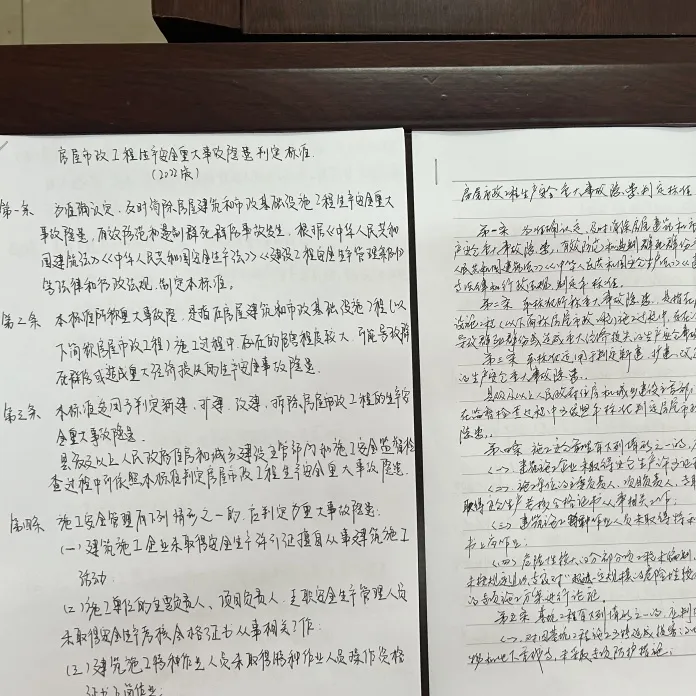 房屋市政工程生产安全重大事故隐患判定标准
(2022版)
第一条 为准确认定、及时消除房屋建筑和市政基础设施工程生产安全重大
事故隐患,有效防范和遏制群死群伤事故发生,根据《中华人民共和
国建筑法》《中华人民共和国安全生产法》《建设工程安全生产管理条例》
等法律和行政法规,制定本标准。
第二条 本标准所称重大事故隐患,是指在房屋建筑和市政基础设施工程(以
下简称房屋市政工程)施工过程中,存在的危害程度较大、可能导致群
死群伤或造成重大经济损失的生产安全事故隐患。
第三条 本标准适用于判定新建、扩建、改建、拆除房屋市政工程的生产安
全重大事故隐患。
县级及以上人民政府住房和城乡建设主管部门和施工安全监督检
查过程中可依照本标准判定房屋市政工程生产安全重大事故隐患。
第四条 施工安全管理有下列情形之一的,应判定为重大事故隐患:
(一)建筑施工企业未取得安全生产许可证擅自从事建筑施工
活动
(二)施工单位的主要负责人、项目负责人、专职安全生产管理人员
未取得安全生产考核合格证书从事相关工作;
(三)建筑施工特种作业人员未取得特种作业人员操作资格
证书上岗作业;
房屋市政工程生产安全重大事故隐患判定标准
第一条 为准确认定、及时消除房屋建筑和市
产安全重大事故隐患,有效防范和遏制群死群伤
人民共和国建筑法》《中华人民共和国安全生产法》《
等法律和行政法规,制定本标准。
第二条 本标准所称重大事故隐患,是指在
设施工程(以下简称房屋市政工程)施工过程中,存在
导致群死群伤或造成重大经济损失的生产安全事故
第三条 本标准适用于判定新建、扩建、改
的生产安全重大事故隐患。
县级及以上人民政府住房和城乡建设主管部
在监督检查过程中可依照本标准判定房屋市
隐患。
第四条 施工安全管理有下列情形之一的,
(一)建筑施工企业未取得安全生产许可证
(二)施工单位的主要负责人、项目负责人、专职
取得安全生产考核合格证书从事相关工作;
(三)建筑施工特种作业人员未取得特种
书上岗作业;
(四)危险性较大的分部分项工程未编制、
未按规定组织专家对"超过一定规模的危险性较大
的专项施工方案进行论证。
第五条 基坑工程有下列情形之一的,应判
(一)对因基坑工程施工可能造成损害的